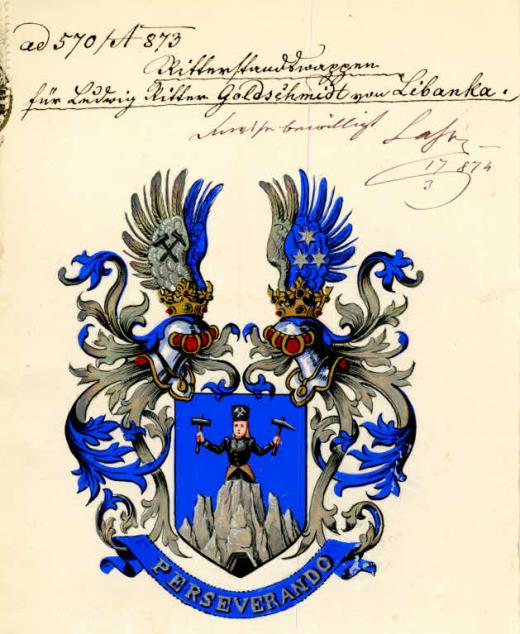 ad 570/A 873
Ritterstandswappen
für Ludwig Ritter Goldschmidt von Libanka.
bewilligt
17 874
3
PERSEVERANDO